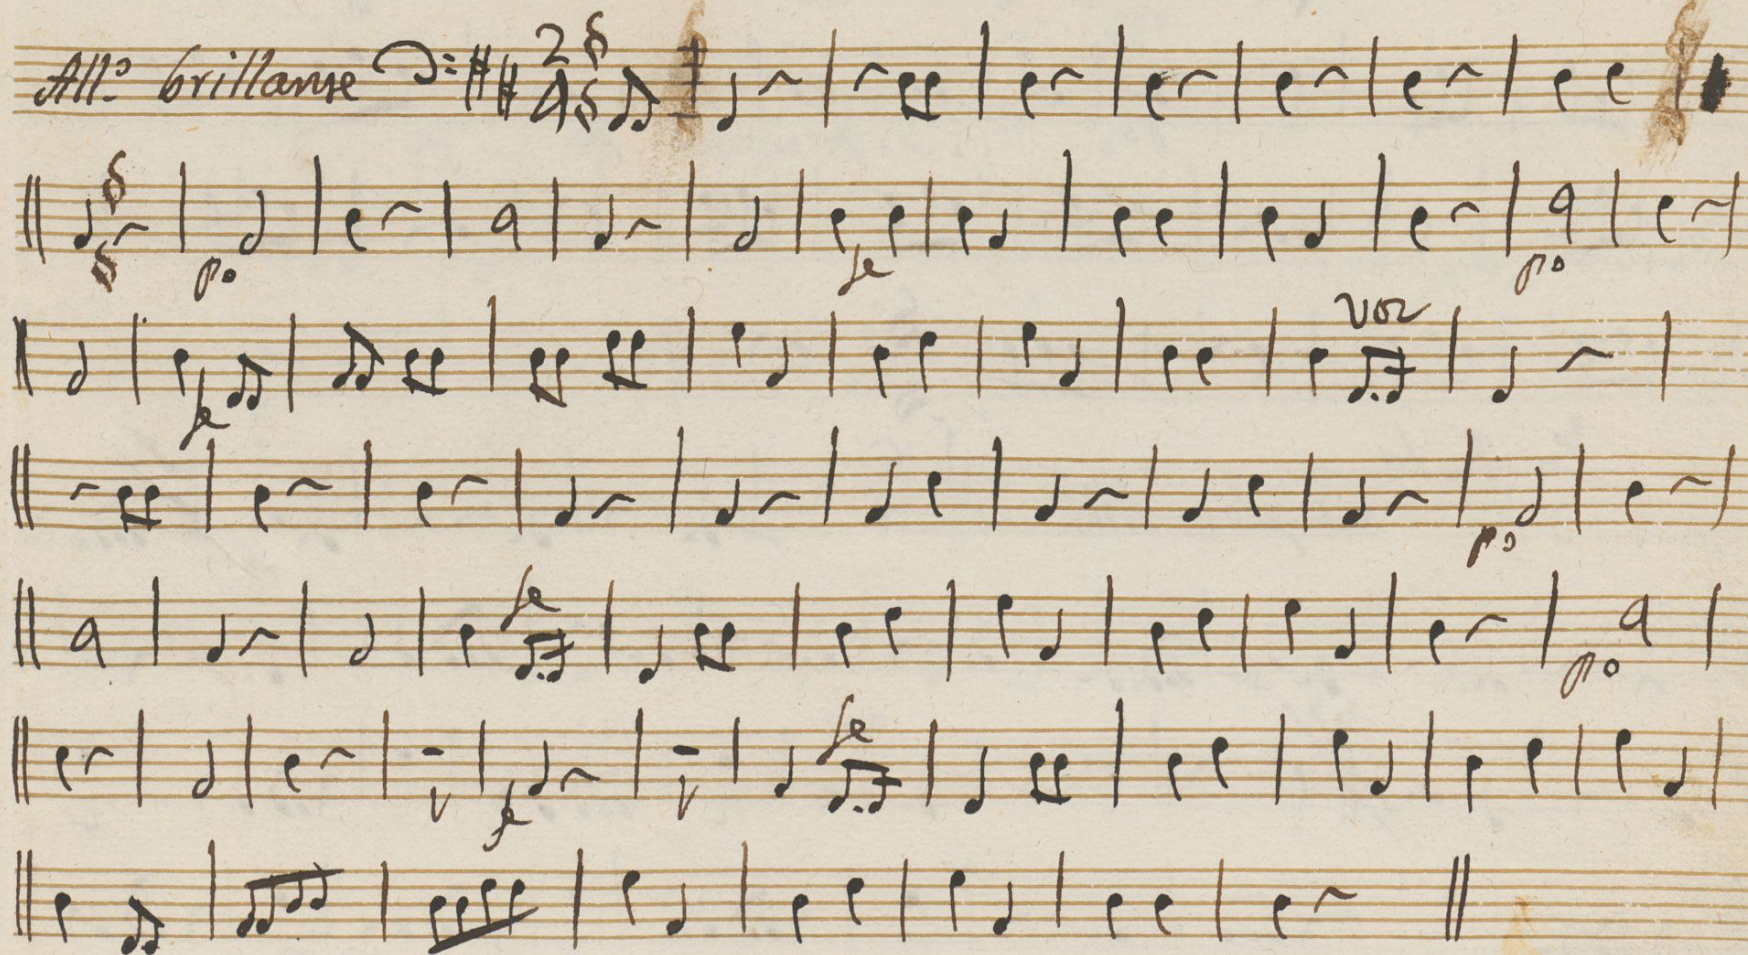 All.º brillante 2 4
p.º fe p.º
fe voz
p.º
fe p.º
f fe